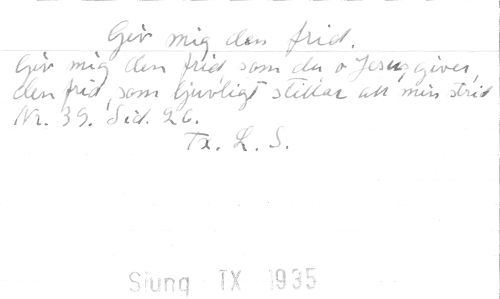 Giv mig den frid.
Giv mig den frid som du, o Jesus, giver,
den frid, som ljuvligt stillar all min strid
Nr. 39. Sid. 26.
Tx. L. S.
Sjung TX 1935